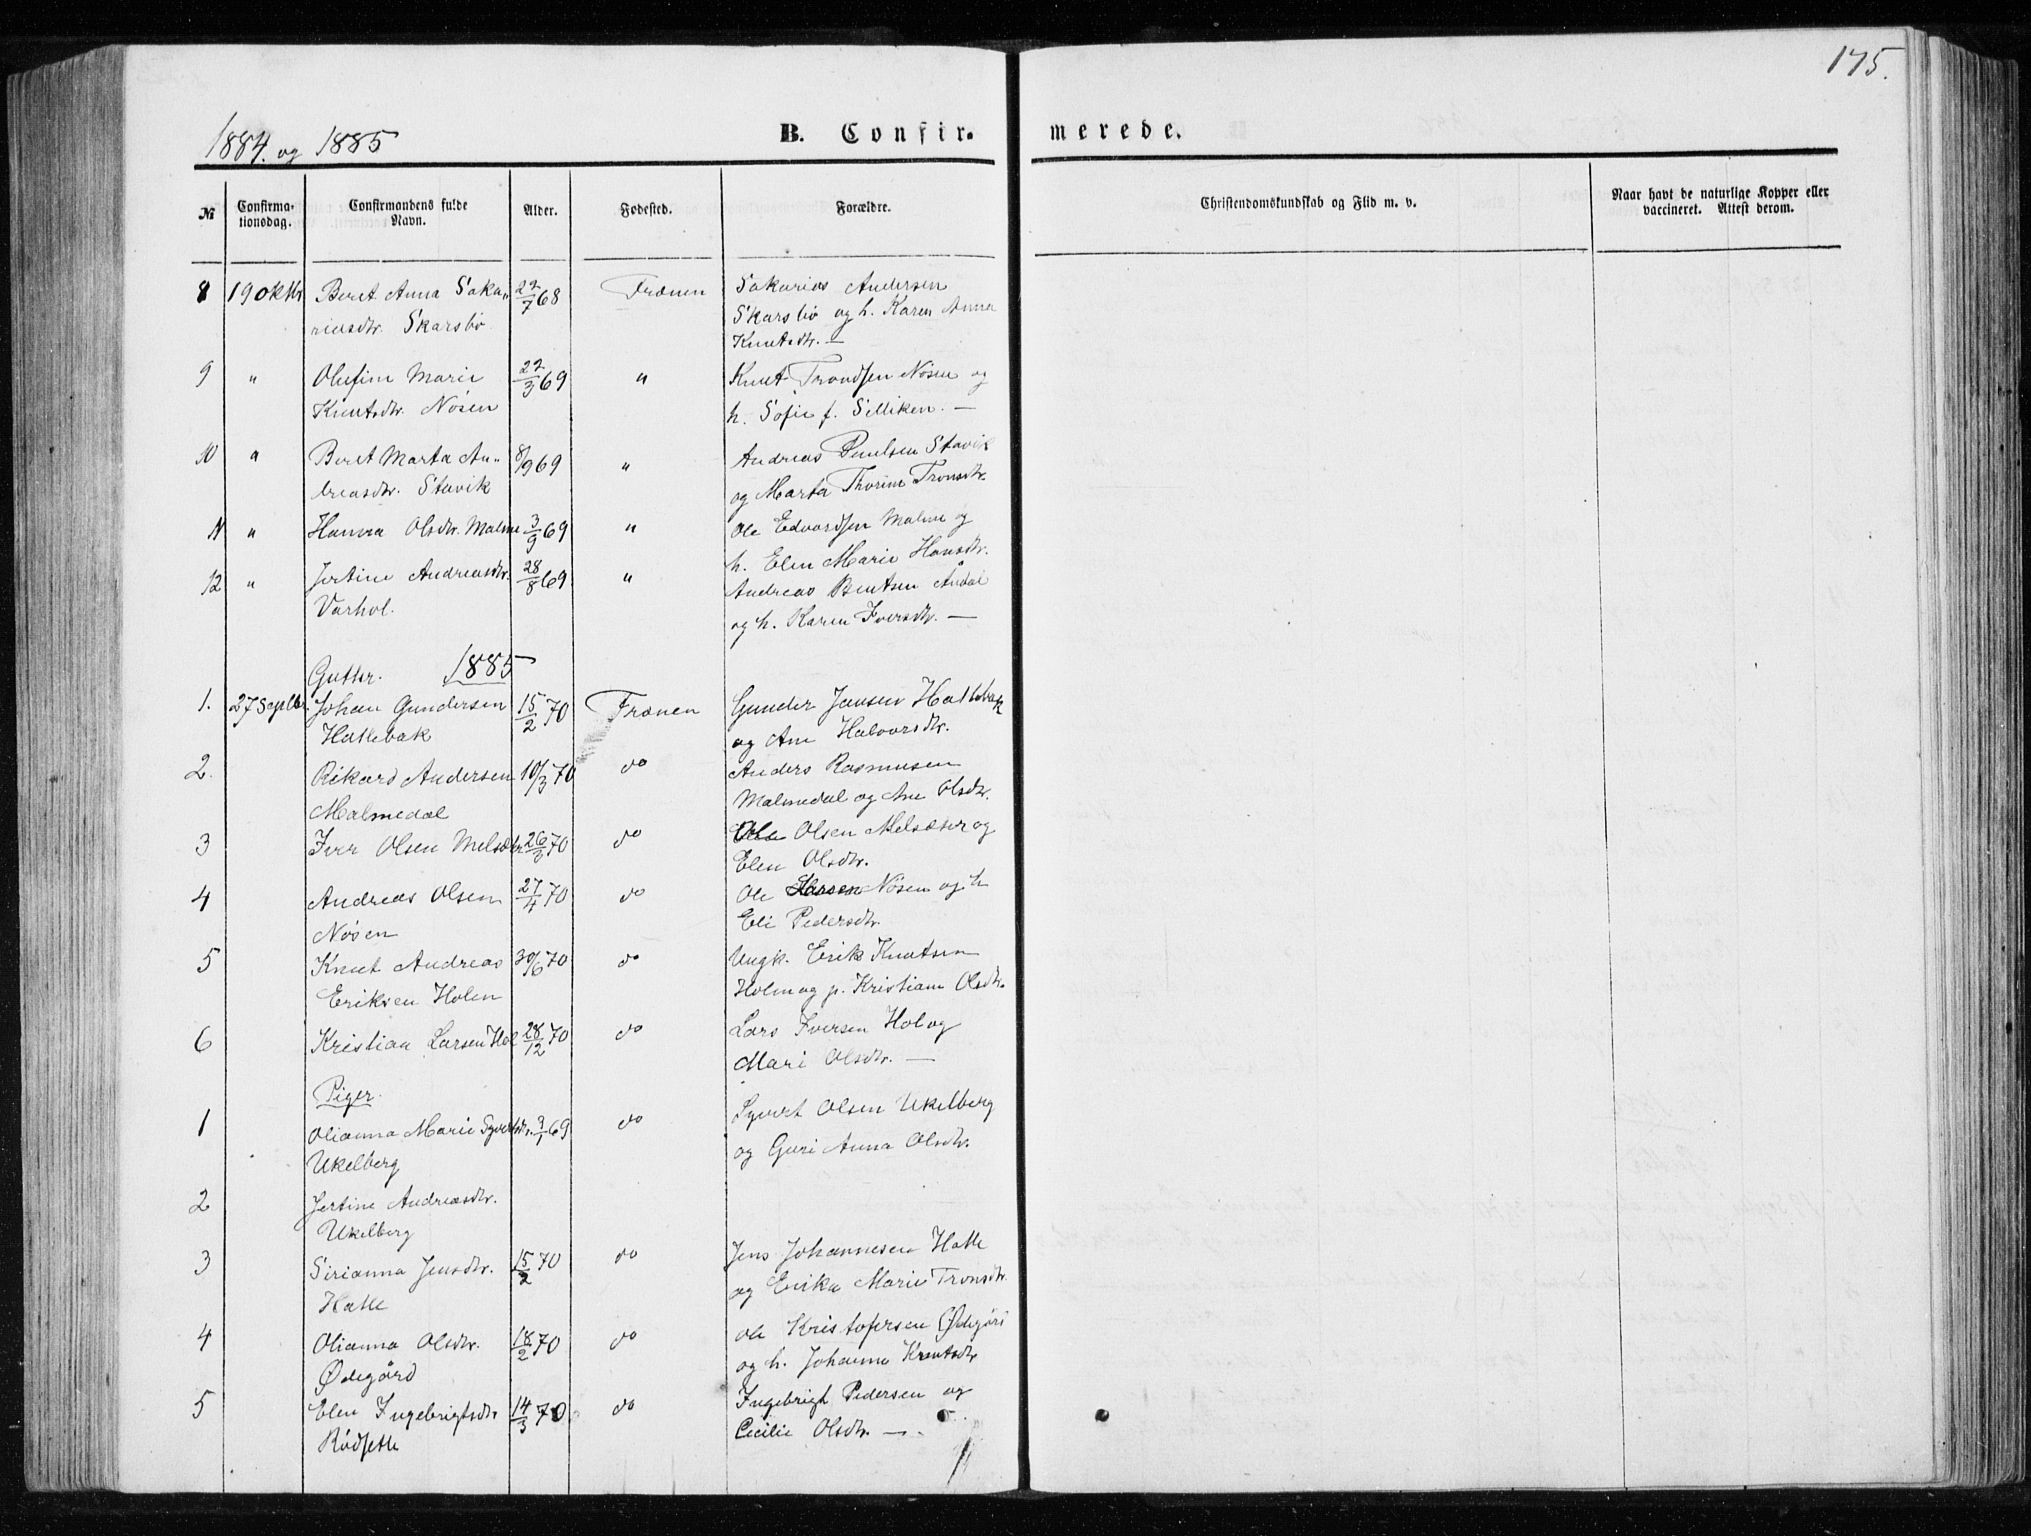 175.
1884. og 1885
B. Confir- merede.
№ Confirma-tionsdag. Confirmandens fulde Navn. Alder. Fødested. Forældre. Christendomskundskab og Flid m. v. Naar havt de naturlige Kopper eller vaccineret. Attest derom.
8 19 Oktbr Beret Anna Saka- 22/7 68 Frænen Sakarias Andersen
riasdtr. Skarsbø Skarsbø og h. Karen Anna
Knutsdtr. —
9 " Olufine Marie 22/3 69 " Knut Trondsen Nøsen og
Knutsdtr. Nøsen h. Sofie f. Silliken. —
10 " Beret Marta An- 8/9 69 " Andreas Paulsen Stavik
dreasdtr. Stavik og Marta Thorine Tronsdtr.
11 " Hanna Olsdtr. Malme 3/9 69 " Ole Edvardsen Malme og
h. Elen Marie Hansdtr.
12 " Jertine Andreasdtr. 28/8 69 " Andreas Bentsen Ådal
Varhol. og h. Karen Iversdtr. —
Gutter. 1885
1. 27 Septbr. Johan Gundersen 15/2 70 Frænen Gunder Jensen Hattebak
Hattebak og Ane Halvorsdtr.
2. Rikard Andersen 10/3 70 do Anders Rasmusen
Malmedal Malmedal og Ane Olsdtr.
3 Iver Olsen Melsæter 26/3 70 do Ole Olsen Melsæter og
Elen Olsdtr.
4 Andreas Olsen 27/4 70 do Ole Larsen Nøsen og h
Nøsen Eli Pedersdtr.
5 Knut Andreas 30/6 70 do Ungk. Erik Knutsen
Eriksen Holen Holen og p. Kristiane Olsdtr.
6 Kristian Larsen Hol 28/12 70 do Lars Iversen Hol og
Mari Olsdtr. —
Piger.
1 Olianna Marie Syvertsdtr. 3/1 69 do Syvert Olsen Ukelberg
Ukelberg og Guri Anna Olsdtr.
2 Jertine Andreasdtr.
Ukelberg
3 Sirianna Jensdtr. 15/2 70 do Jens Johannesen Hatle
Hatle og Erika Marie Tronsdtr.
4 Olianna Olsdtr. 18/2 70 do Ole Kristofersen Ødegård
Ødegård og h. Johanne Knutsdtr
5 Elen Ingebrigtsdtr 14/3 70 do Ingebrigt Pedersen og
Rødsetle Cecilie Olsdtr. —